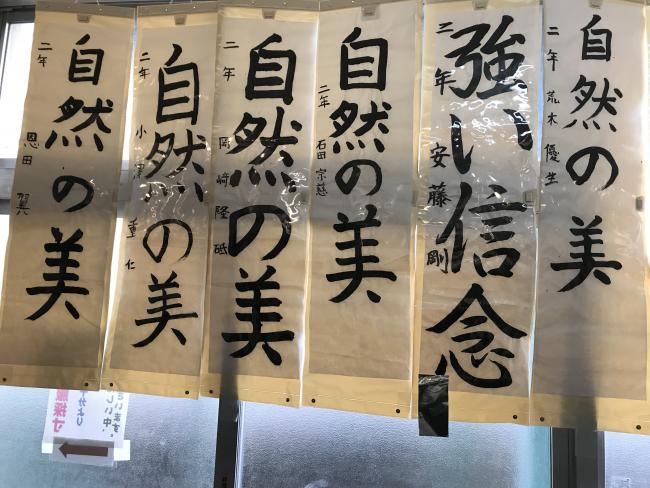 自然の美
二年 荒木 優生
強い信念
三年 安藤 剛
自然の美
二年 石田 宗慈
自然の美
二年 岡崎 隆砥
自然の美
二年
重仁
自然の美
二年 恩田
服採寸